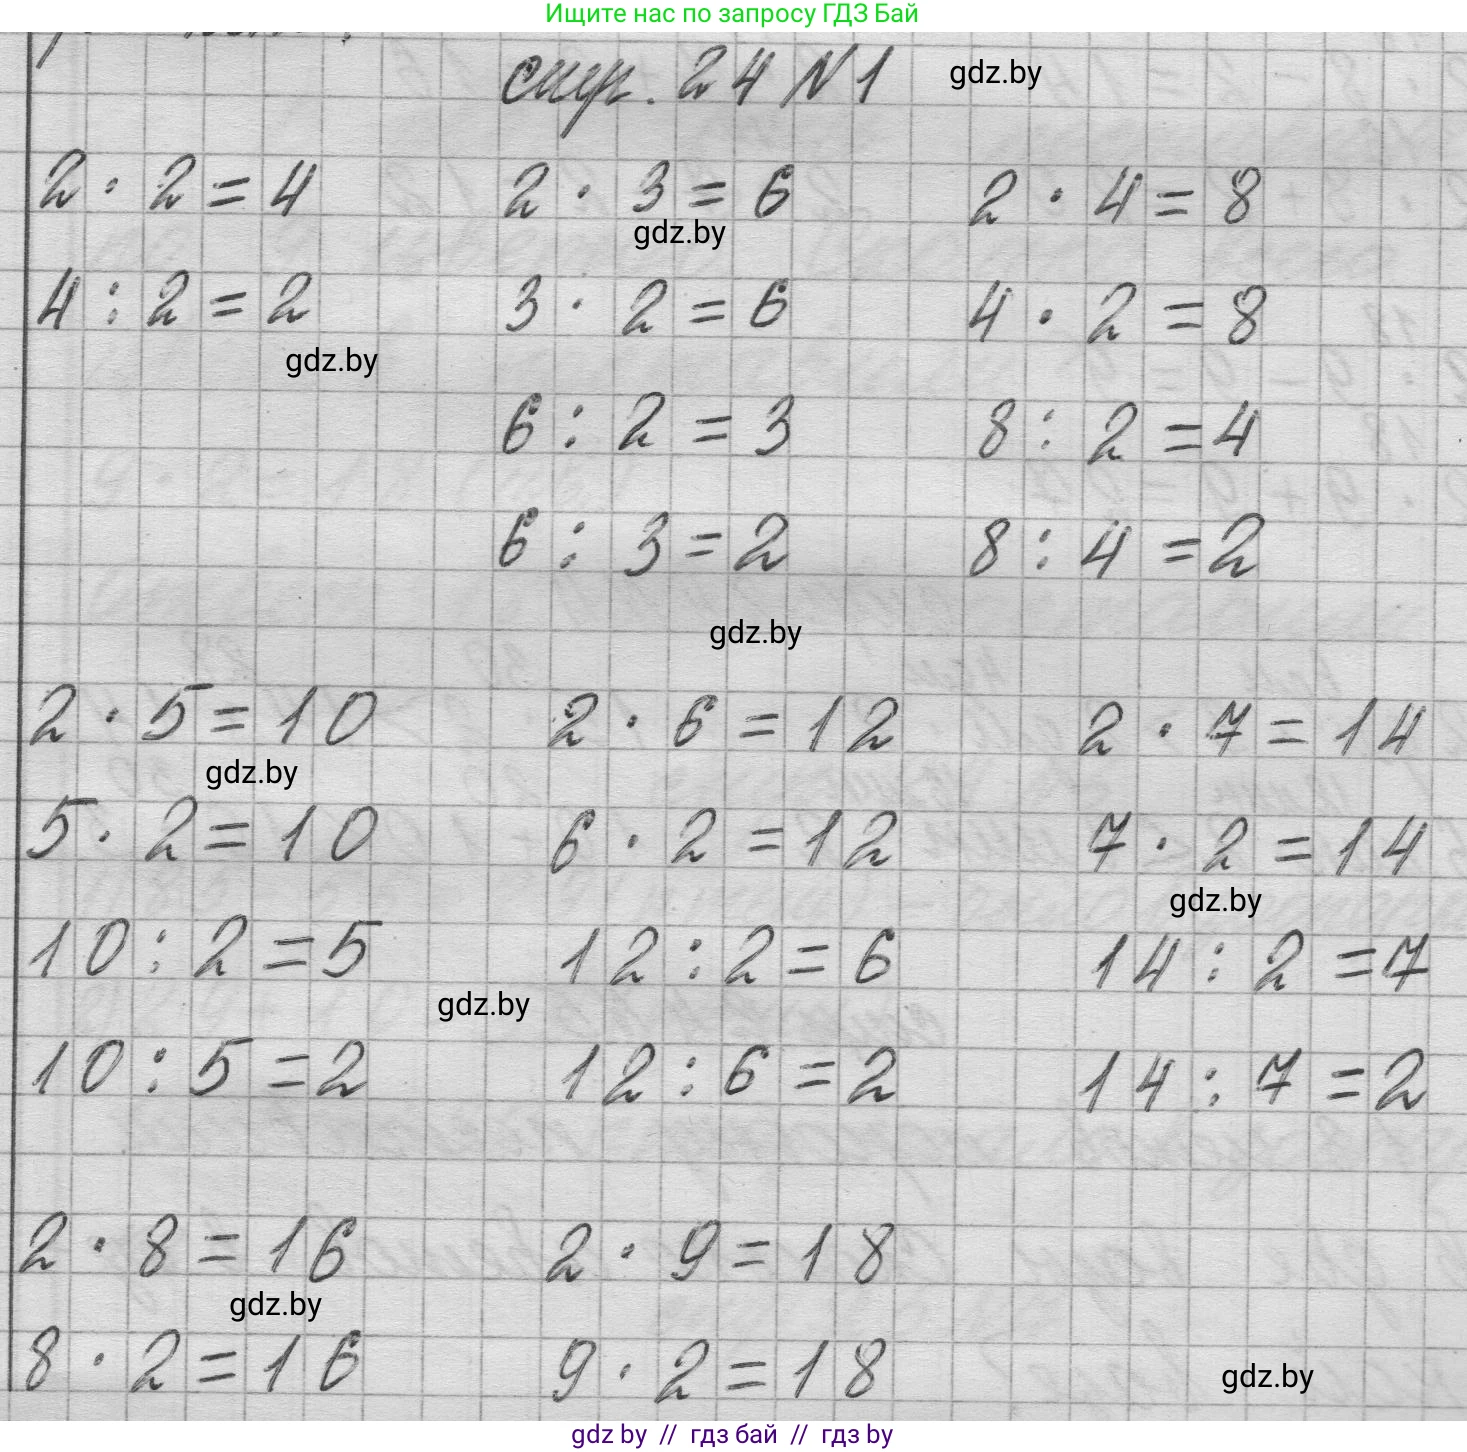 Ищите нас по запросу ГДЗ Бай
стр. 24 N 1 gdz.by
2 · 2 = 4 2 · 3 = 6 2 · 4 = 8
gdz.by
4 : 2 = 2 3 · 2 = 6 4 · 2 = 8
gdz.by
6 : 2 = 3 8 : 2 = 4
6 : 3 = 2 8 : 4 = 2
gdz.by
2 · 5 = 10 2 · 6 = 12 2 · 7 = 14
gdz.by
5 · 2 = 10 6 · 2 = 12 7 · 2 = 14
gdz.by
10 : 2 = 5 12 : 2 = 6 14 : 2 = 7
gdz.by
10 : 5 = 2 12 : 6 = 2 14 : 7 = 2
2 · 8 = 16 2 · 9 = 18
gdz.by
8 · 2 = 16 9 · 2 = 18
gdz.by
gdz by // гдз бай // гдз by